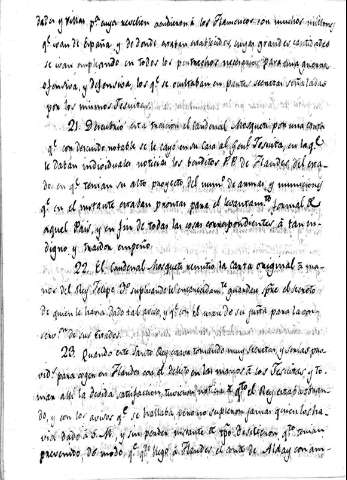 dades y villas pª. cuya revelion acudieron à los Flamencos con muchos millones
qº. ivan de España, y de donde estaban establecidos, cuyas grandes cantidades
se ivan empleando en todos los pertrechos necesarios para una guerra
ofensiva, y defensiva, los qº. se ocultaban en partes secretas señaladas
por los mismos Jesuitas.
21. Descubrio esta traicion el Cardenal Mosqueti por una carta
qº. con descuido notable se le cayó en su casa al Genl. Jesuita, en la qº.
le daban individuales noticias los benditos P.P. de Flandes, del esta-
do en qº. tenian su alto proyecto, del numº. de armas, y municiones
qº. en el instante estaban prontas para el levantamtº. formal de
aquel Pais, y en fin de todas las cosas correspondientes à tan in-
digno y traidor empeño.
22. El Cardenal Mosqueti remitio la Carta original à ma-
nos del Rey Felipe 3º. suplicandole encarecidamtº. guardase spre. el secreto
de quien le havia dado tal aviso, y qº. con el usase de su justª. para la con-
serv.on de sus Estados.
23. Quando este Santo Rey estava tomando muy secretas, y serias pro-
vidªs. para coger en Flandes con el delito en las manos à los Jesuitas y to-
mar alli la devida satisfaccion, tuvieron noticia de qtº. el Rey estaba obran-
do, y con los avisos qº. se hallaba, pero no supieron jamas quien los ha-
via dado à S.M., y sin perder instante de tpº. deshicieron qtº. tenian
prevenido de modo, qº. qdº. llegó à Flandes el conde de Alday con am-